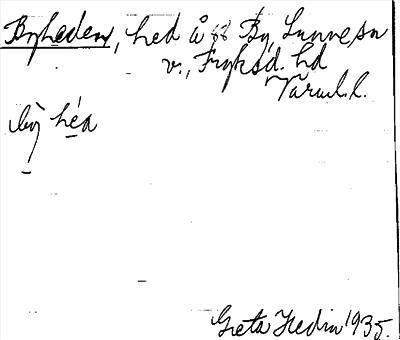 Byheden, hed å By, Sunne sn
v., Fryksd. hd
Värml. l.
by̍ héa
Greta Hedin 1935.